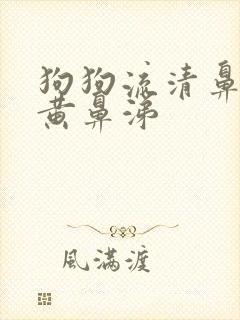 狗狗流清鼻
黄鼻涕
風滿渡